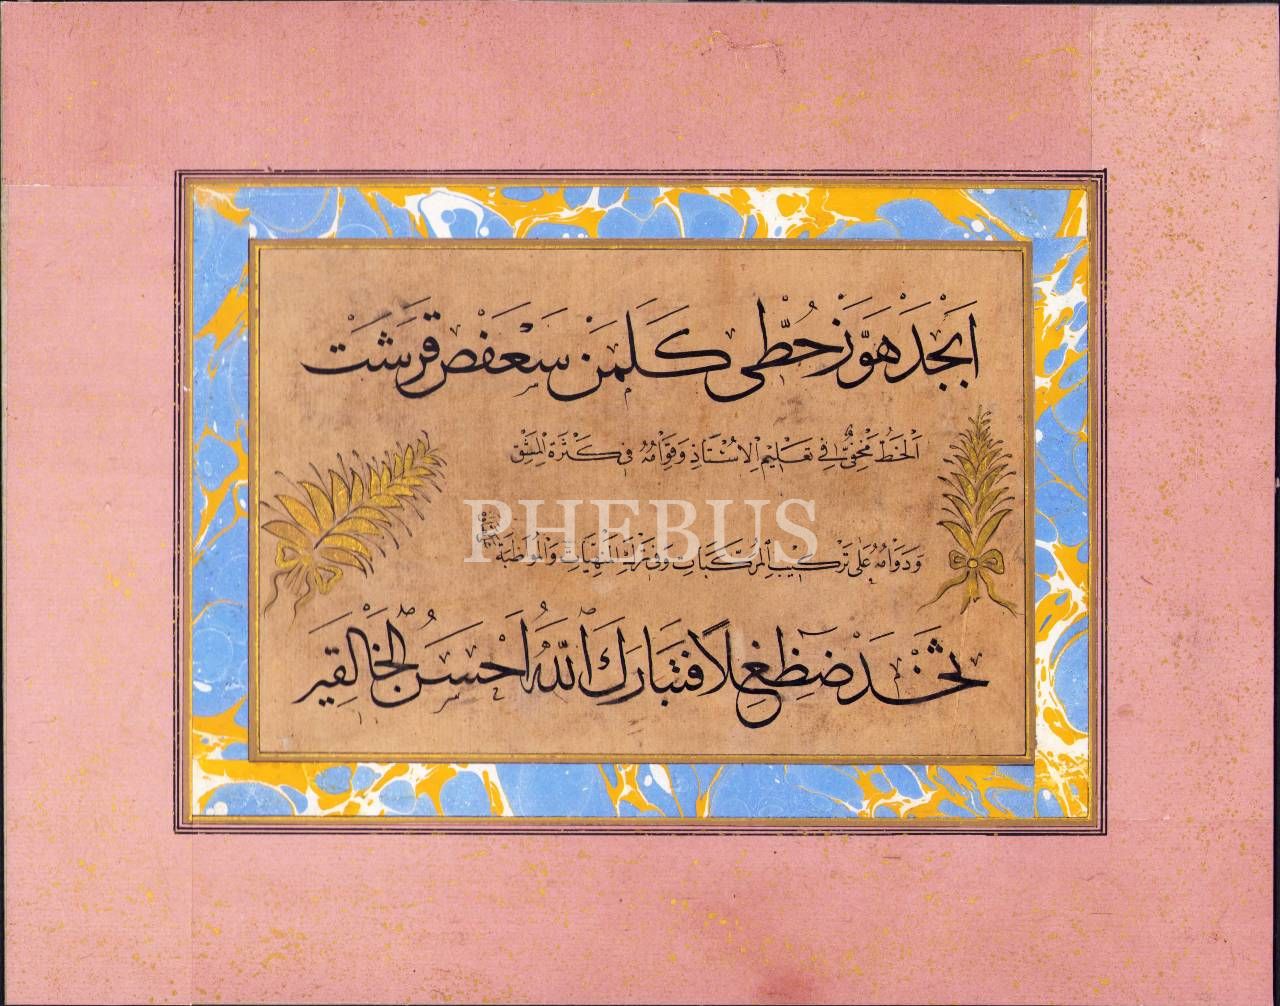 اَبْجَدْ هَوَّزْ حُطِّى كَلَمَنْ سَعْفَصْ قَرَشَتْ
اَلْخَطُّ مَخْفِىٌّ فِى تَعْلِيمِ الْاُسْتَاذِ وَقِوَامُهُ فِى كَثْرَةِ الْمَشْقِ
PHEBUS
وَدَوَامُهُ عَلٰى تَرْكِيبِ الْمُرَكَّبَاتِ وَفِى تَرْكِ الْمَنْهِيَّاتِ وَالْمُوَاظَبَةِ
ثَخَذْ ضَظِغٍ لَا فَتَبَارَكَ اللّٰهُ اَحْسَنُ الْخَالِقِيَن